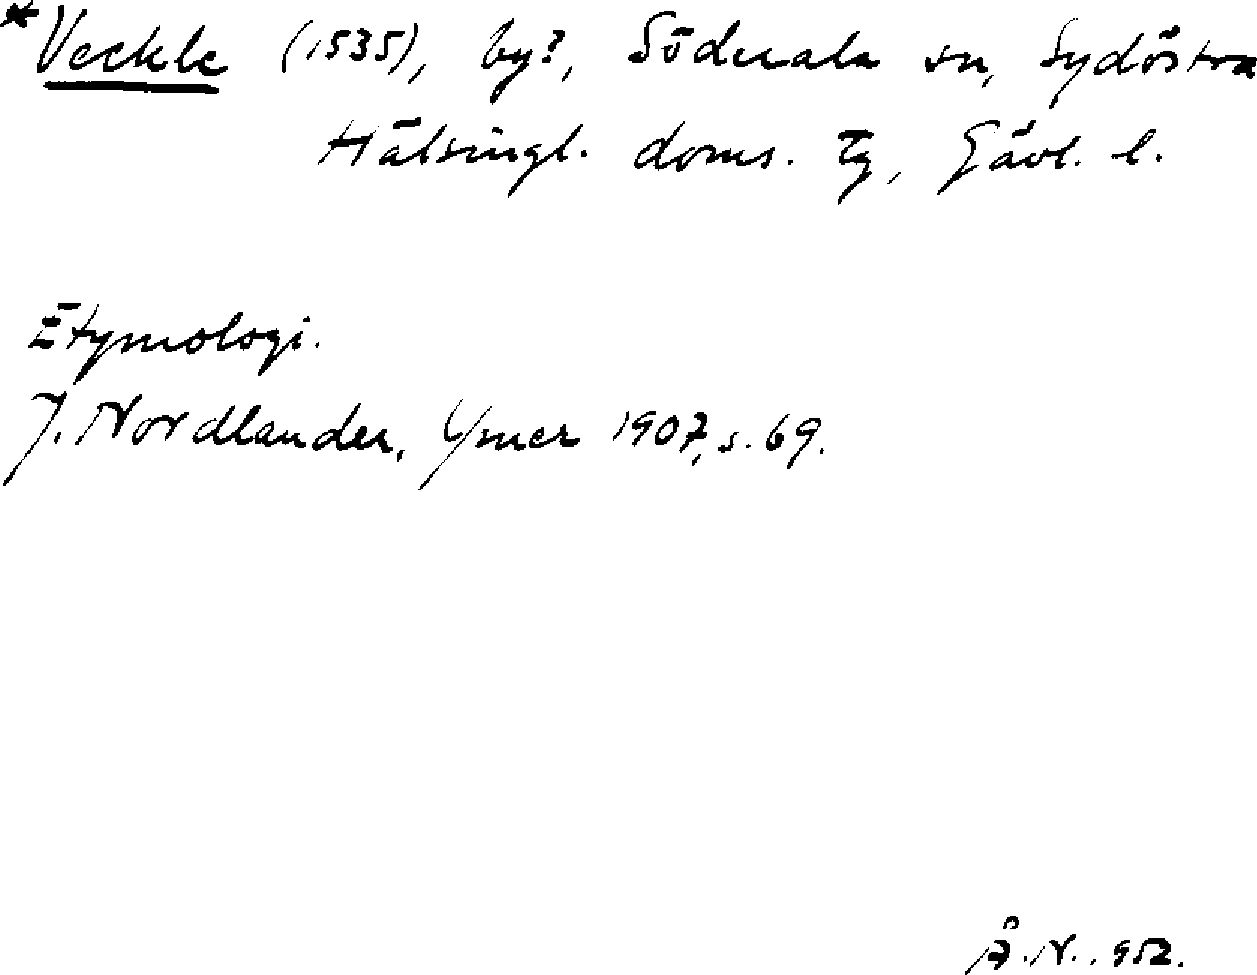 *Veckle (1535), by?, Söderala sn, Sydöstra
Hälsingl. doms. tg, Gävl. l.
Etymologi.
J. Nordlander, Ymer 1907, s. 69.
Å.N. 1952.